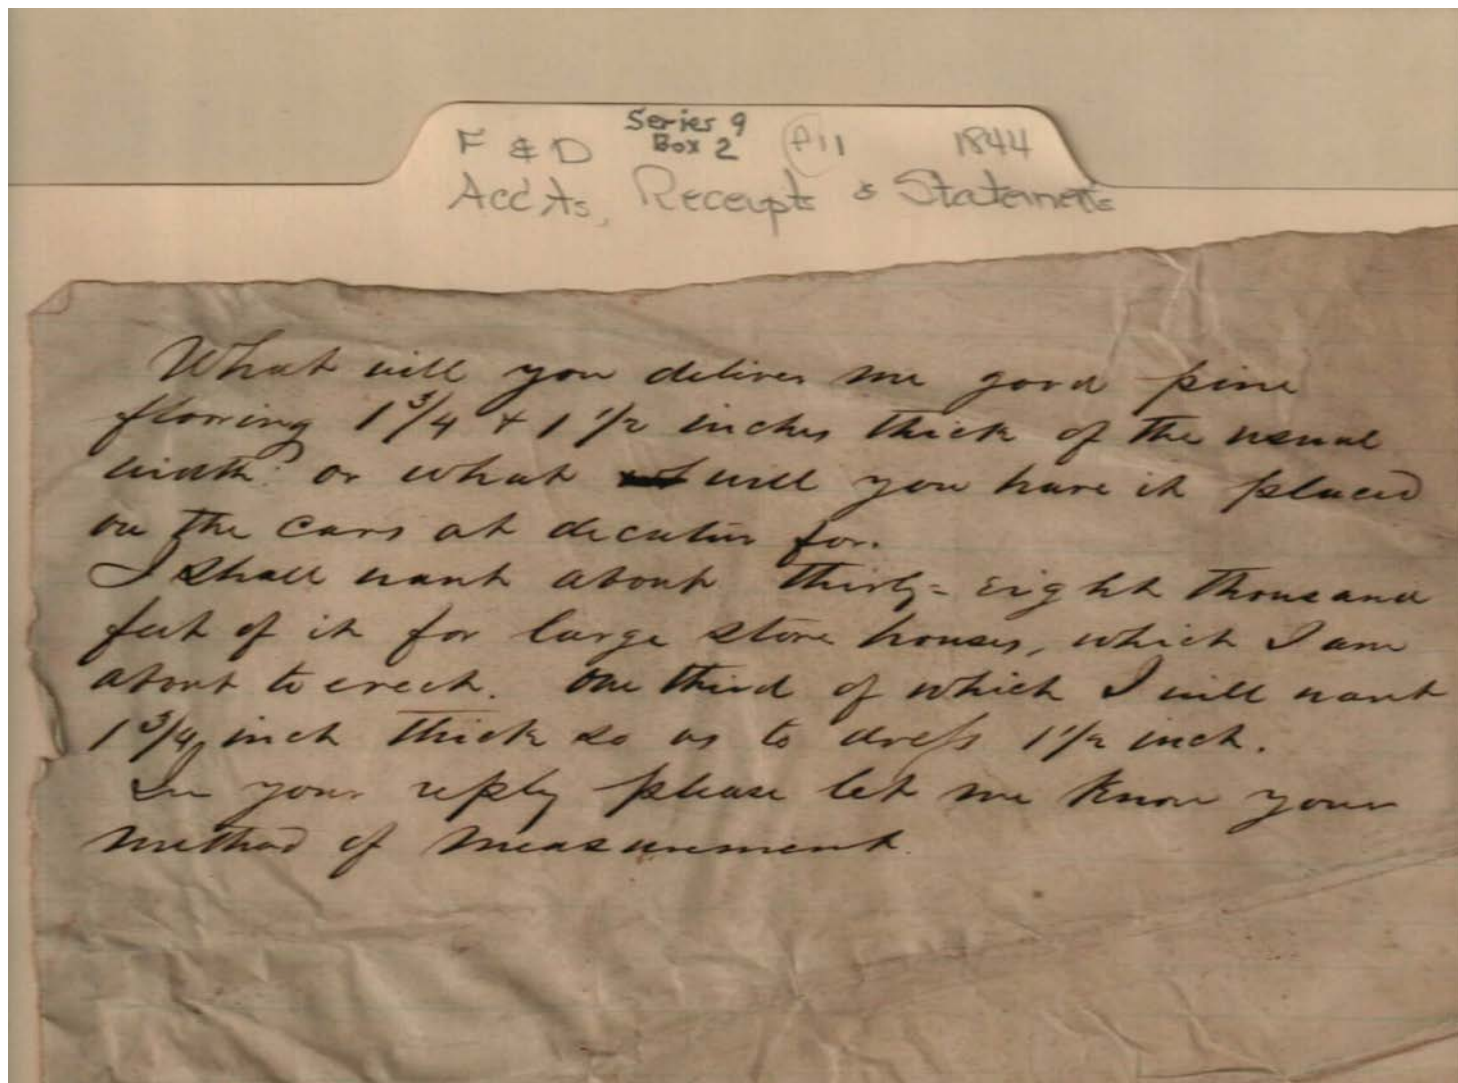 Series 9
F & D Box 2 F11 1844
Accts, Receipts & Statements
What will you deliver me good pine
flooring 1 3/4 & 1 1/2 inches thick of the usual
width? or what will you have it placed
on the cars at decatur for.
I shall want about thirty=eight thousand
feet of it for large store houses, which I am
about to erect. One third of which I will want
1 3/4 inch thick so as to dress 1 1/2 inch.
In your reply please let me know your
method of measurement.